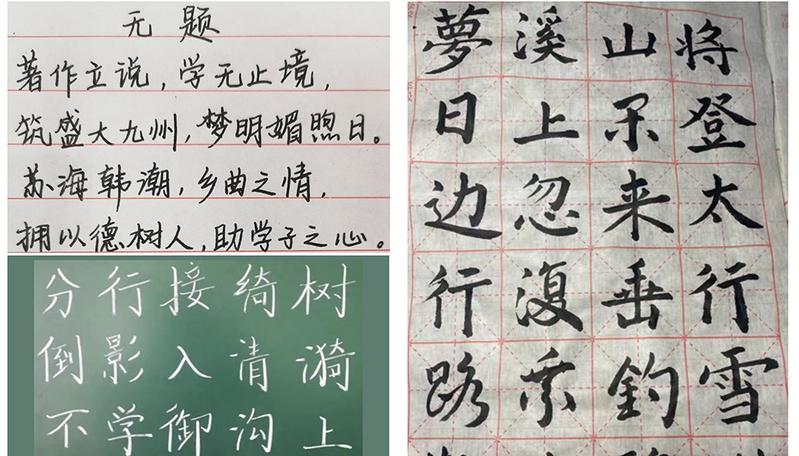 无题
著作立说,学无止境,
筑盛大九州,梦明媚煦日。
苏海韩潮,乡曲之情,
拥以德树人,助学子之心。
分行接绮树
倒影入清漪
不学御沟上
将登太行雪
山闲来垂釣
溪上忽復乘
夢日边行路